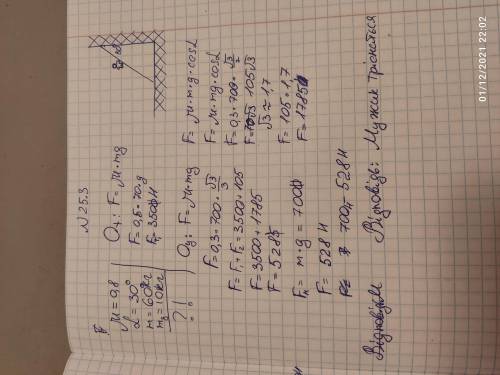 N 25.3
μ = 0,8
α = 30°
m = 60кг
m₃ = 10кг
?!
O₄: F = μ·mg
F = 0,5·70·g
F = 350 Н
O₃: F = μ·mg
F = 0,3·700·√3/3
F = F₁ + F₂ = 3500 + 105
F = 3500 + 1785
F = 5285
Fₙ = m·g = 700
F = 528 Н
700 528 Н
F = μ·m·g·cosα
F = μ·mg·cosα
F = 0,3·700·√3/2
F = 105√3
√3 ≈ 1,7
F = 105·1,7
F = 1785
Відповідь: Мужик
01/12/2021 14:02